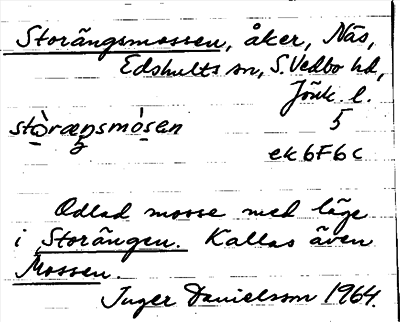 Storängsmossen, åker, Näs,
Edshults sn, S. Vedbo hd,
Jönk. l.
stòræŋsmósen 5
ek 6F6c
Odlad mosse med läge
i Storängen. Kallas även
Mossen.
Inger Danielsson 1964.